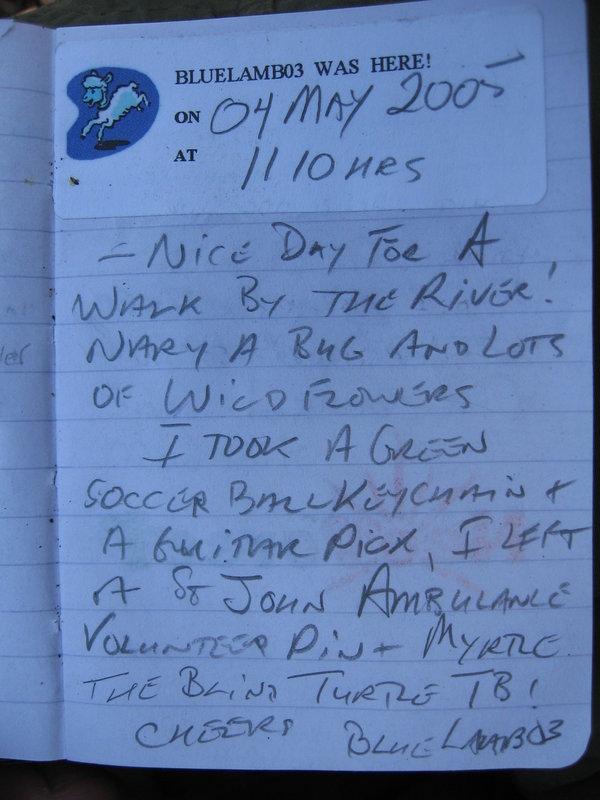 BLUELAMB03 WAS HERE!
ON 04 MAY 2005
AT 1110 HRS
- NICE DAY FOR A
WALK BY THE RIVER!
NARY A BUG AND LOTS
OF WILD FLOWERS
I TOOK A GREEN
SOCCER BALL KEYCHAIN +
A GUITAR PICK, I LEFT
A St JOHN AMBULANCE
VOLUNTEER PIN + MYRTLE
THE BLIND TURTLE TB!
CHEERS BLUELAMB03